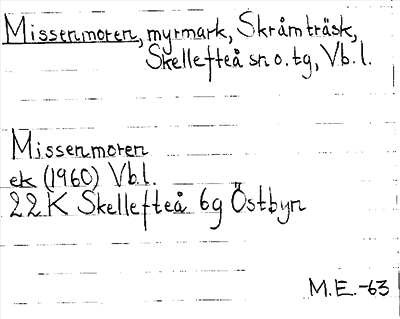 Missenmoren, myrmark, Skråmträsk,
Skellefteå sn o. tg, Vb. l.
Missenmoren
ek (1960) Vb.l.
22K Skellefteå 6g Östbyn
M.E.-63